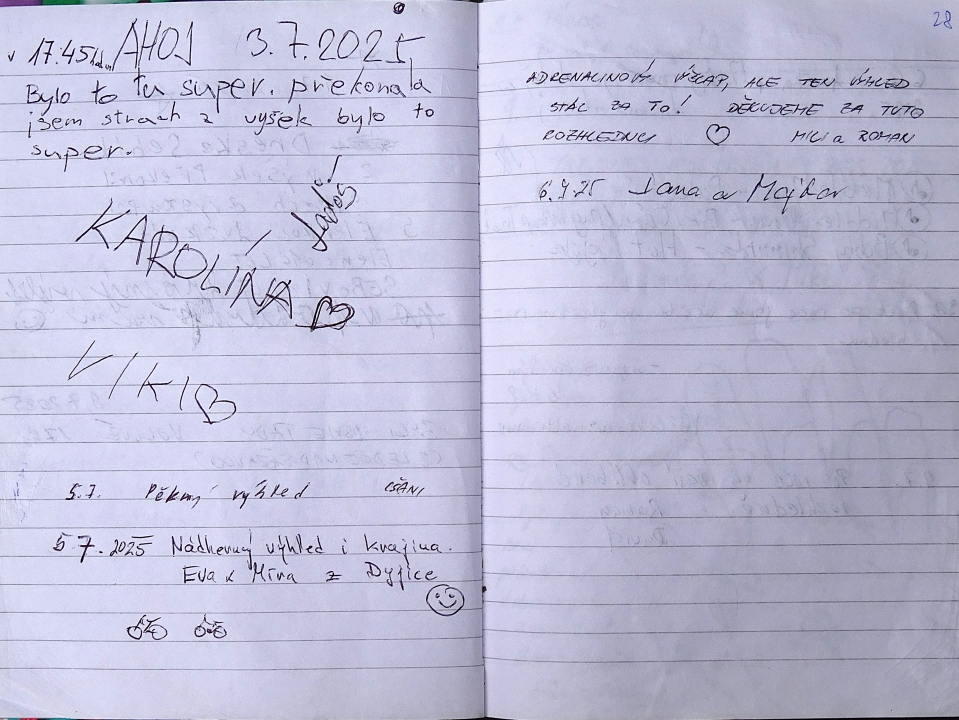 v 17.45 AHOJ 3.7.2025
Bylo to tu super. překonala
jsem strach z vyšek bylo to
super.
KAROLÍNA
VIKI
5.7. Pěkný výhled
5.7.2025 Nádherný výhled i krajina.
Eva a Míra z Dyjice
28
ADRENALINOVÝ VÝŠLAP, ALE TEN VÝHLED
STÁL ZA TO! DĚKUJEME ZA TUTO
ROZHLEDNU MILI a ROMAN
Jana a